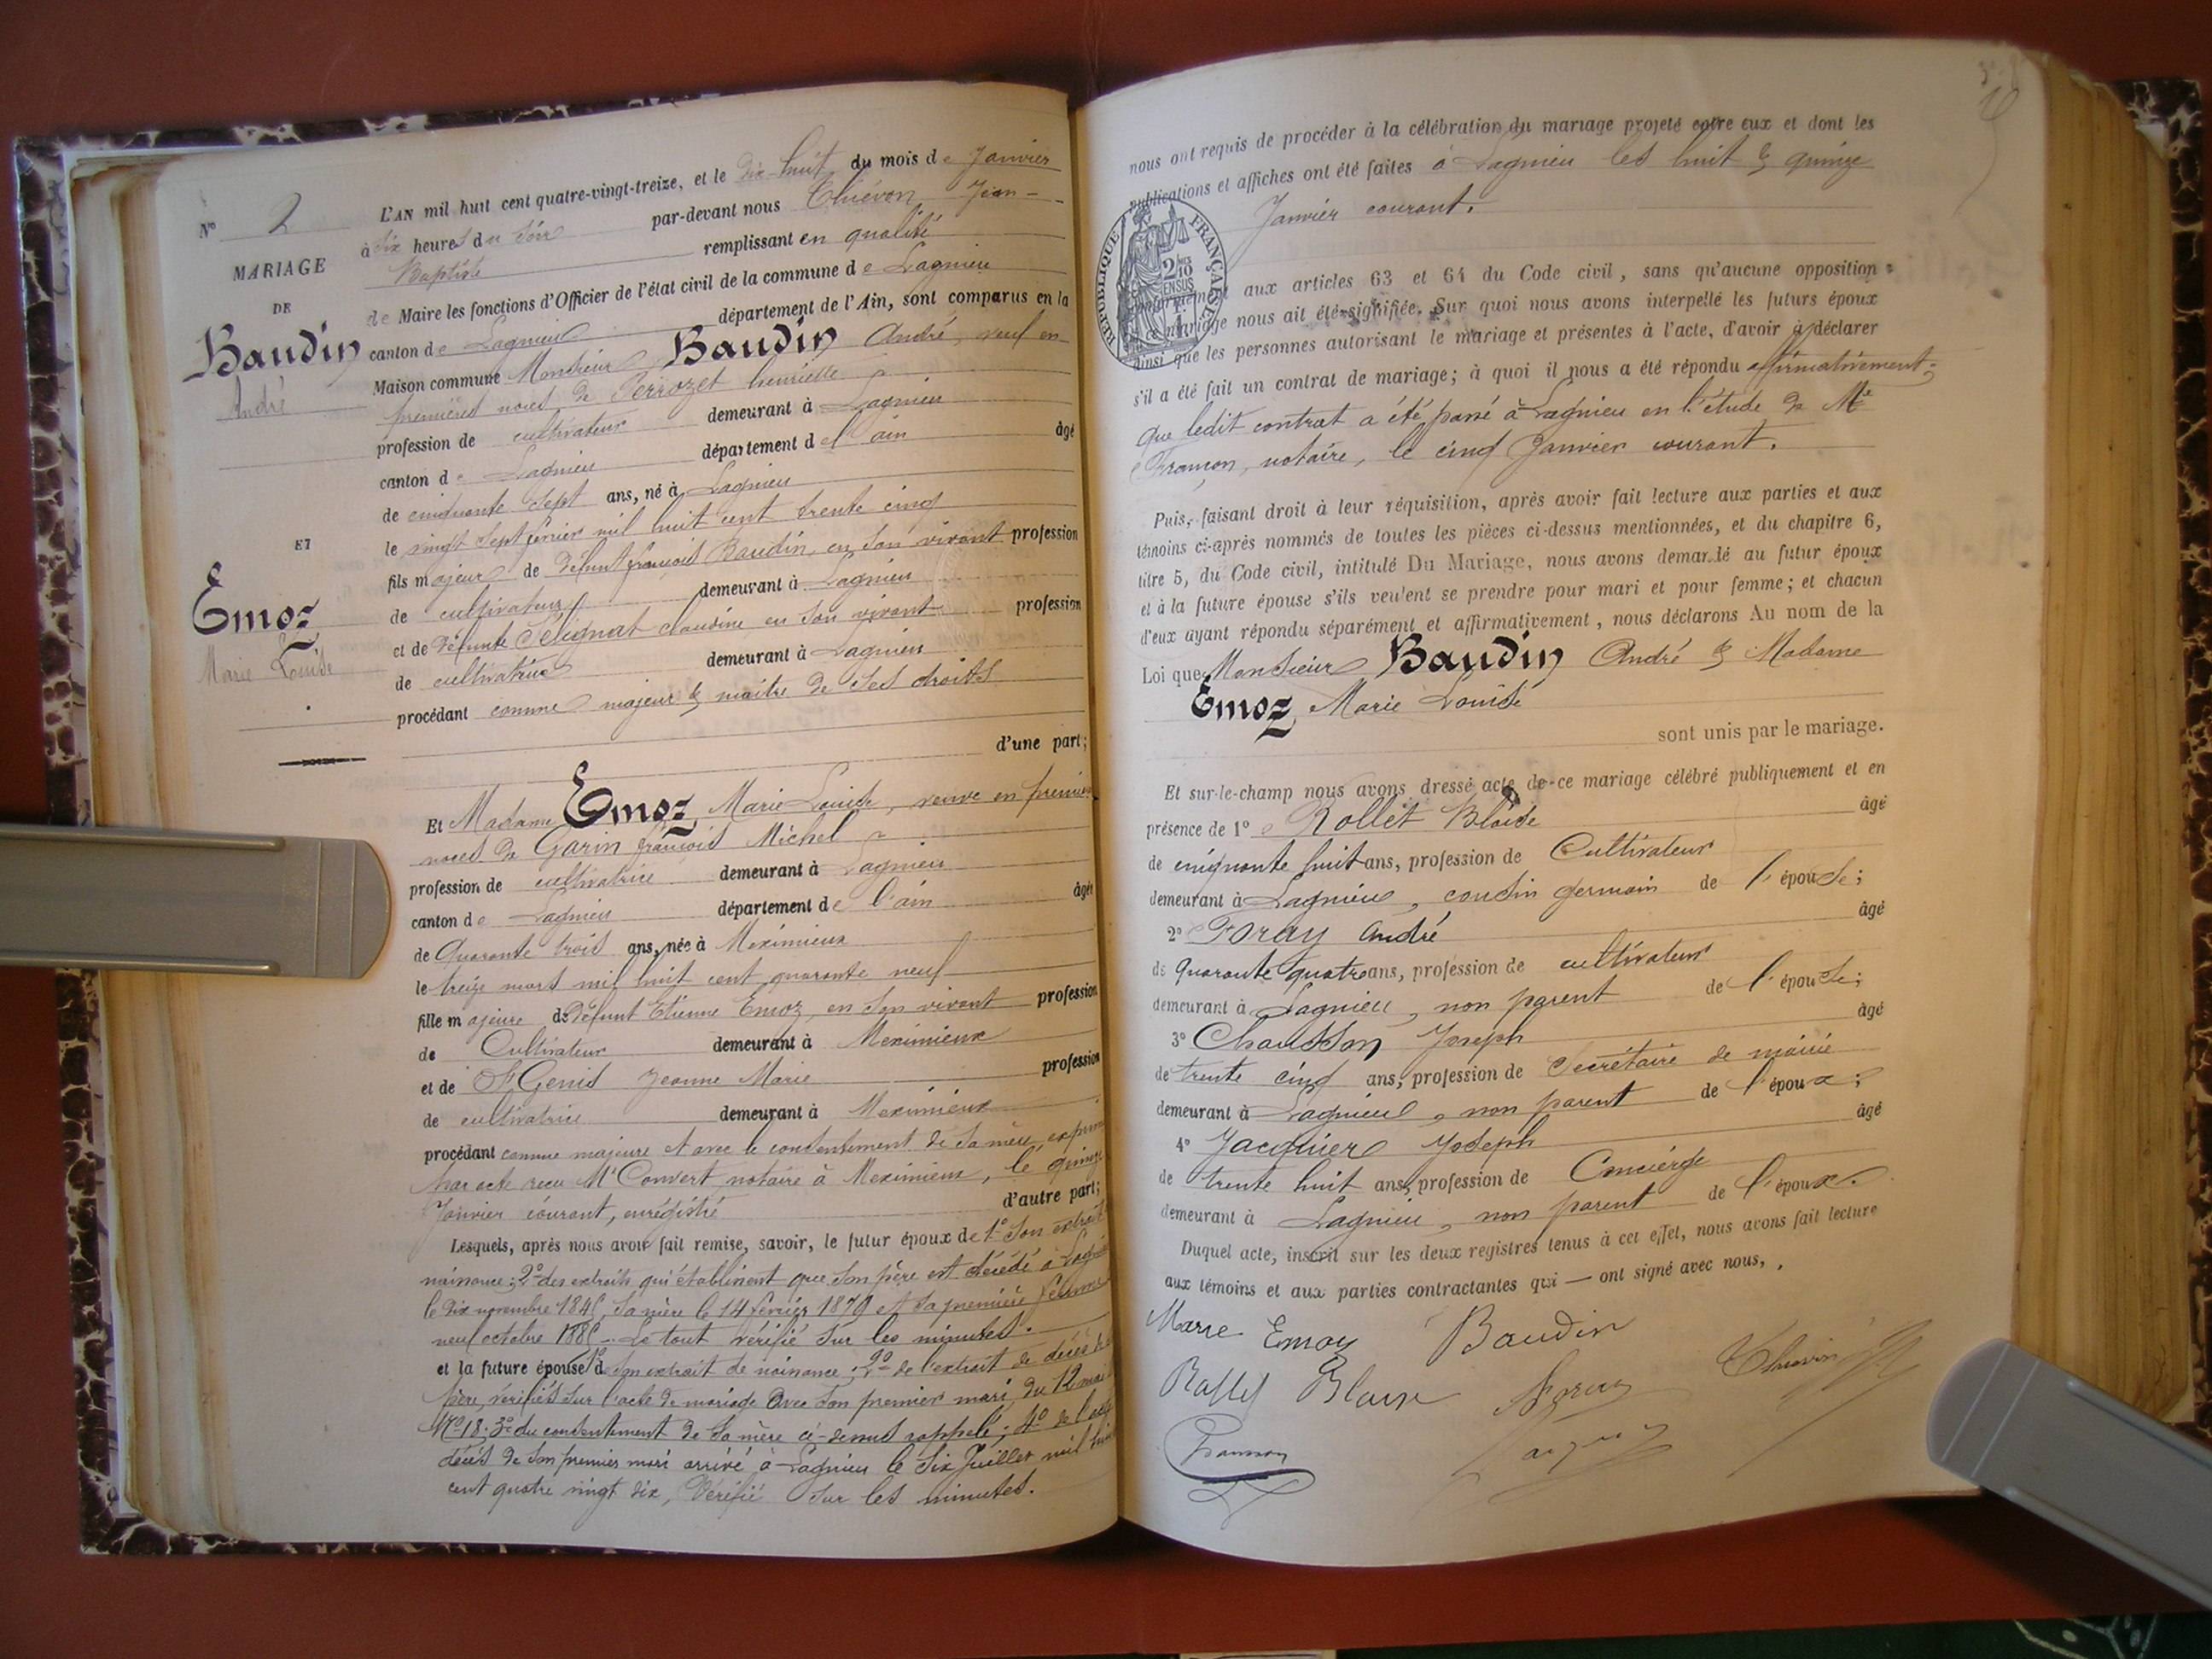 N° 2
MARIAGE
DE
Baudin
André
ET
Emoz
Marie Louise
L'AN mil huit cent quatre-vingt-treize, et le dix-huit du mois de Janvier
à six heures du soir par-devant nous Thiévon Jean-
Baptiste remplissant en qualité
de Maire les fonctions d'Officier de l'état civil de la commune de Lagnieu
canton de Lagnieu département de l'Ain, sont comparus en la
Maison commune Monsieur Baudin André, veuf en
premières noces de Perrozet henriette
profession de cultivateur demeurant à Lagnieu
canton de Lagnieu département de l'ain âgé
de cinquante sept ans, né à Lagnieu
le vingt sept février mil huit cent trente cinq
fils majeur de défunt françois Baudin, en son vivant profession
de cultivateur demeurant à Lagnieu
et de défunte Sélignat claudine en son vivant profession
de cultivatrice demeurant à Lagnieu
procédant comme majeur & maitre de ses droits
d'une part;
Et Madame Emoz Marie Louise, veuve en premières
noces de Garin françois Michel
profession de cultivatrice demeurant à Lagnieu
canton de Lagnieu département de l'ain âgée
de Quarante trois ans, née à Meximieux
le treize mars mil huit cent quarante neuf
fille majeure de défunt Etienne Emoz, en son vivant profession
de Cultivateur demeurant à Meximieux
et de St Genis Jeanne Marie profession
de cultivatrice demeurant à Meximieux
procédant comme majeure et avec le consentement de sa mère, exprimé
par acte reçu Me Convert notaire à Meximieux, le quinze
Janvier courant, enrégistré d'autre part;
Lesquels, après nous avoir fait remise, savoir, le futur époux de 1° son extrait
naissance; 2° des extraits qui établissent que son père est décédé à Lagnieu
le dix novembre, sa mère le 14 février 1879 et sa première femme
neuf octobre. Le tout vérifié sur les minutes.
et la future épouse 1° de son extrait de naissance; 2° de l'extrait de décès de
père, vérifiés sur l'acte de mariage avec son premier mari, du 12 mai
N° 18; 3° du consentement de sa mère ci-dessus rappelé; 4° de l'acte
décès de son premier mari arrivé à Lagnieu le six Juillet mil huit
cent quatre vingt dix, Vérifié sur les minutes.
nous ont requis de procéder à la célébration du mariage projeté entre eux et dont les
publications et affiches ont été faites à Lagnieu les huit & quinze
Janvier courant.
RÉPUBLIQUE FRANÇAISE
2/10 EN SUS
conformément aux articles 63 et 64 du Code civil, sans qu'aucune opposition
à ce mariage nous ait été signifiée. Sur quoi nous avons interpellé les futurs époux
ainsi que les personnes autorisant le mariage et présentes à l'acte, d'avoir à déclarer
s'il a été fait un contrat de mariage; à quoi il nous a été répondu affirmativement;
que ledit contrat a été passé à Lagnieu en l'étude de Me
Françon, notaire, le cinq Janvier courant.
Puis, faisant droit à leur réquisition, après avoir fait lecture aux parties et aux
témoins ci-après nommés de toutes les pièces ci-dessus mentionnées, et du chapitre 6,
titre 5, du Code civil, intitulé Du Mariage, nous avons demandé au futur époux
et à la future épouse s'ils veulent se prendre pour mari et pour femme; et chacun
d'eux ayant répondu séparément et affirmativement, nous déclarons Au nom de la
Loi que Monsieur Baudin André & Madame
Emoz Marie Louise
sont unis par le mariage.
Et sur-le-champ nous avons dressé acte de ce mariage célébré publiquement et en
présence de 1° Rollet Blaise âgé
de cinquante huit ans, profession de Cultivateur
demeurant à Lagnieu, cousin germain de l'épouse;
2° Foray André âgé
de quarante quatre ans, profession de cultivateur
demeurant à Lagnieu, non parent de l'épouse;
3° Chausson Joseph âgé
de trente cinq ans, profession de Secrétaire de mairie
demeurant à Lagnieu, non parent de l'époux;
4° Jacquier Joseph âgé
de trente huit ans, profession de Concierge
demeurant à Lagnieu, non parent de l'époux.
Duquel acte, inscrit sur les deux registres tenus à cet effet, nous avons fait lecture
aux témoins et aux parties contractantes qui — ont signé avec nous,.
Marie Emoz Baudin
Rollet Blaise Foray Thiévon
Chausson Jacquier